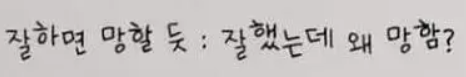 잘하면 망할 듯 : 잘했는데 왜 망함?